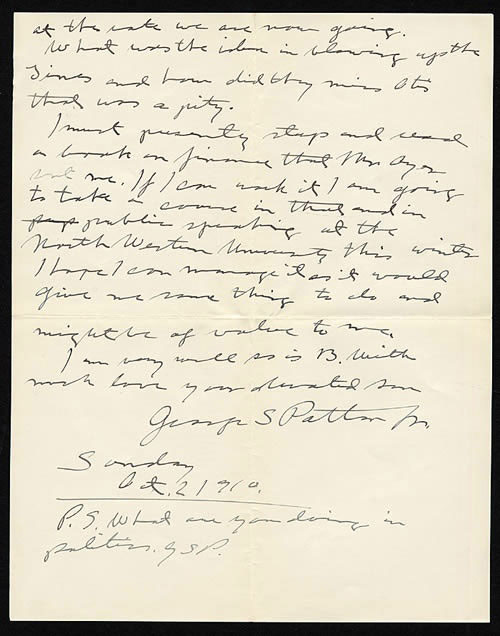 at the rate we are now going.
What was the idea in blowing up the
Times and how did they miss Otis
that was a pity.
I must presently stop and read
a book on finance that Mr Ayer
sent me. If I can work it I am going
to take a course in that and in
pup public speaking at the
North Western University this winter
I hope I can manage it as it would
give me some thing to do and
might be of value to me.
I am very well so is B. With
much love your devoted son
George S Patton Jr.
Sunday
Oct. 2 1910.
P. S. What are you doing in
politics. G S P.